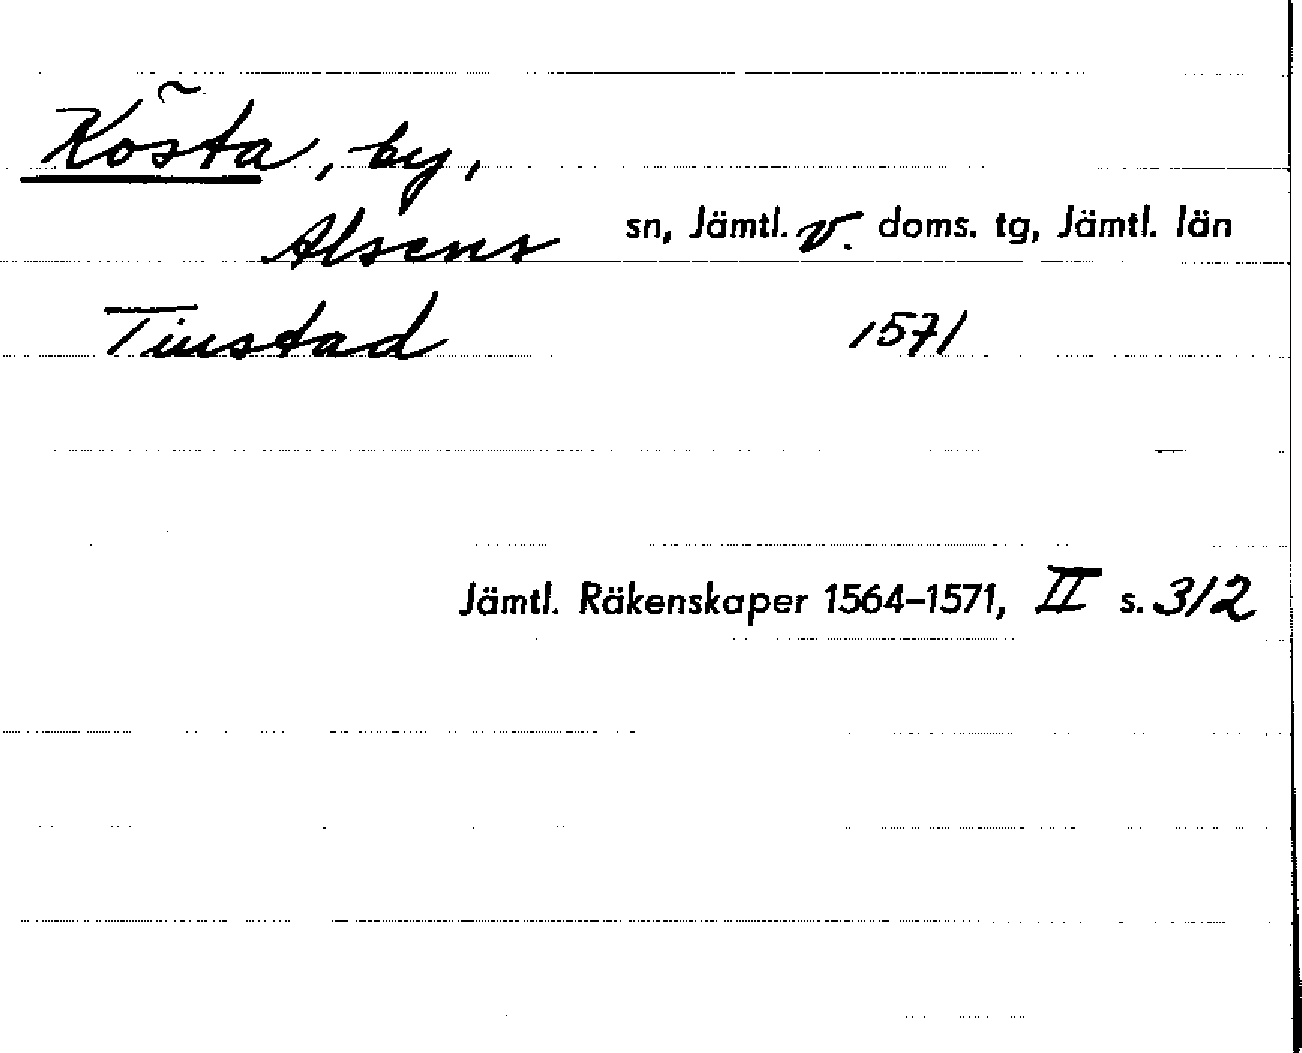 Kösta, by,
Alsens sn, Jämtl. v. doms. tg, Jämtl. län
Tiustad 1571
Jämtl. Räkenskaper 1564–1571, II s. 312